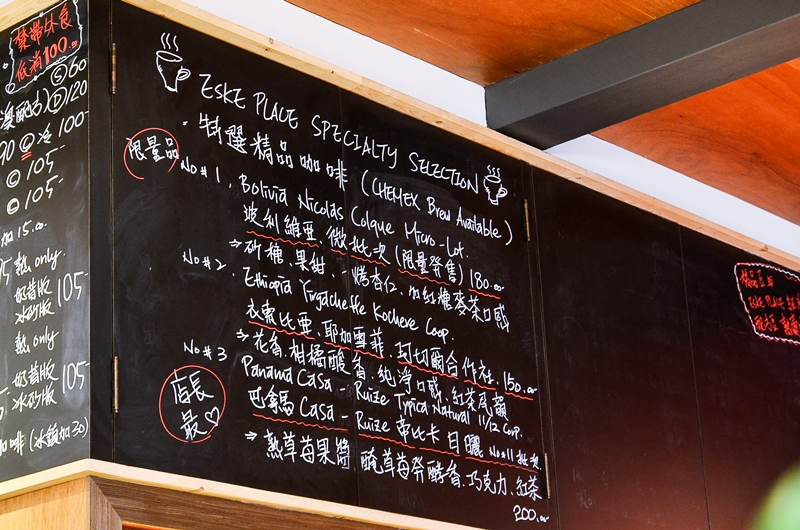 禁帶外食
低消100.
Ⓢ60
Ⓓ120
Ⓒ 冷 100-
Ⓒ 105-
Ⓒ 105-
加 15.00
熱 only.
奶昔版
冰砂版 105-
熱 only
奶昔版
冰砂版 105-
咖啡 (冰鎮加30)
ESKE PLACE SPECIALTY SELECTION
・特選精品咖啡 (CHEMEX Brew Available)
限量品
No#1. Bolivia Nicolás Colque Micro-Lot.
波利維亞.微批次 (限量発售) 180.00
→砂糖.果甜.烤杏仁.加紅糖麥茶口感
No#2. Ethiopia Yirgacheffe Kochere Coop.
衣索比亞.耶加雪菲.珂切爾合作社. 150.00
→花香.柑橘酸香.純淨口感.紅茶尾韻
No#3 Panama Casa-Ruize Typica Natural 11/12 Coop.
店長最♡
巴拿馬 Casa-Ruize 帝比卡 日曬 No#11批次
→熟草莓果醬 醃草莓発酵香.巧克力.紅茶
200.00